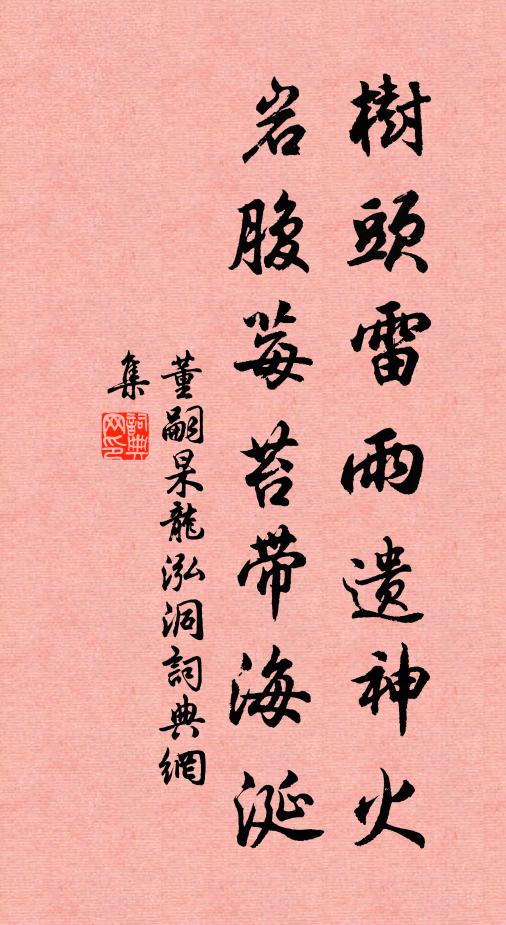 樹頭雷雨遺神火
岩腹莓苔帶海涎
董嗣杲龍泓洞詞典網
集
詞典
网印